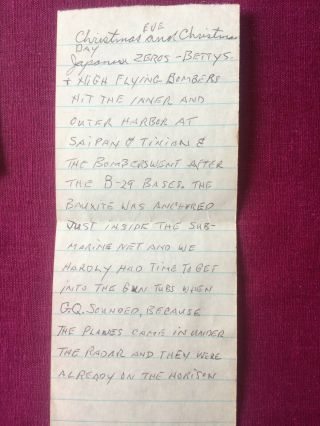 EVE
Christmas and Christmas
DAY
Japanese ZEROS - BETTYS -
+ HIGH FLYING BOMBERS
HIT THE INNER AND
OUTER HARBOR AT
SAIPAN & TINIAN &
THE BOMBERS WENT AFTER
THE B-29 BASES. THE
BAUXITE WAS ANCHORED
JUST INSIDE THE SUB-
MARINE NET AND WE
HARDLY HAD TIME TO GET
INTO THE GUN TUBS WHEN
G.Q. SOUNDED, BECAUSE
THE PLANES CAME IN UNDER
THE RADAR AND THEY WERE
ALREADY ON THE HORISON